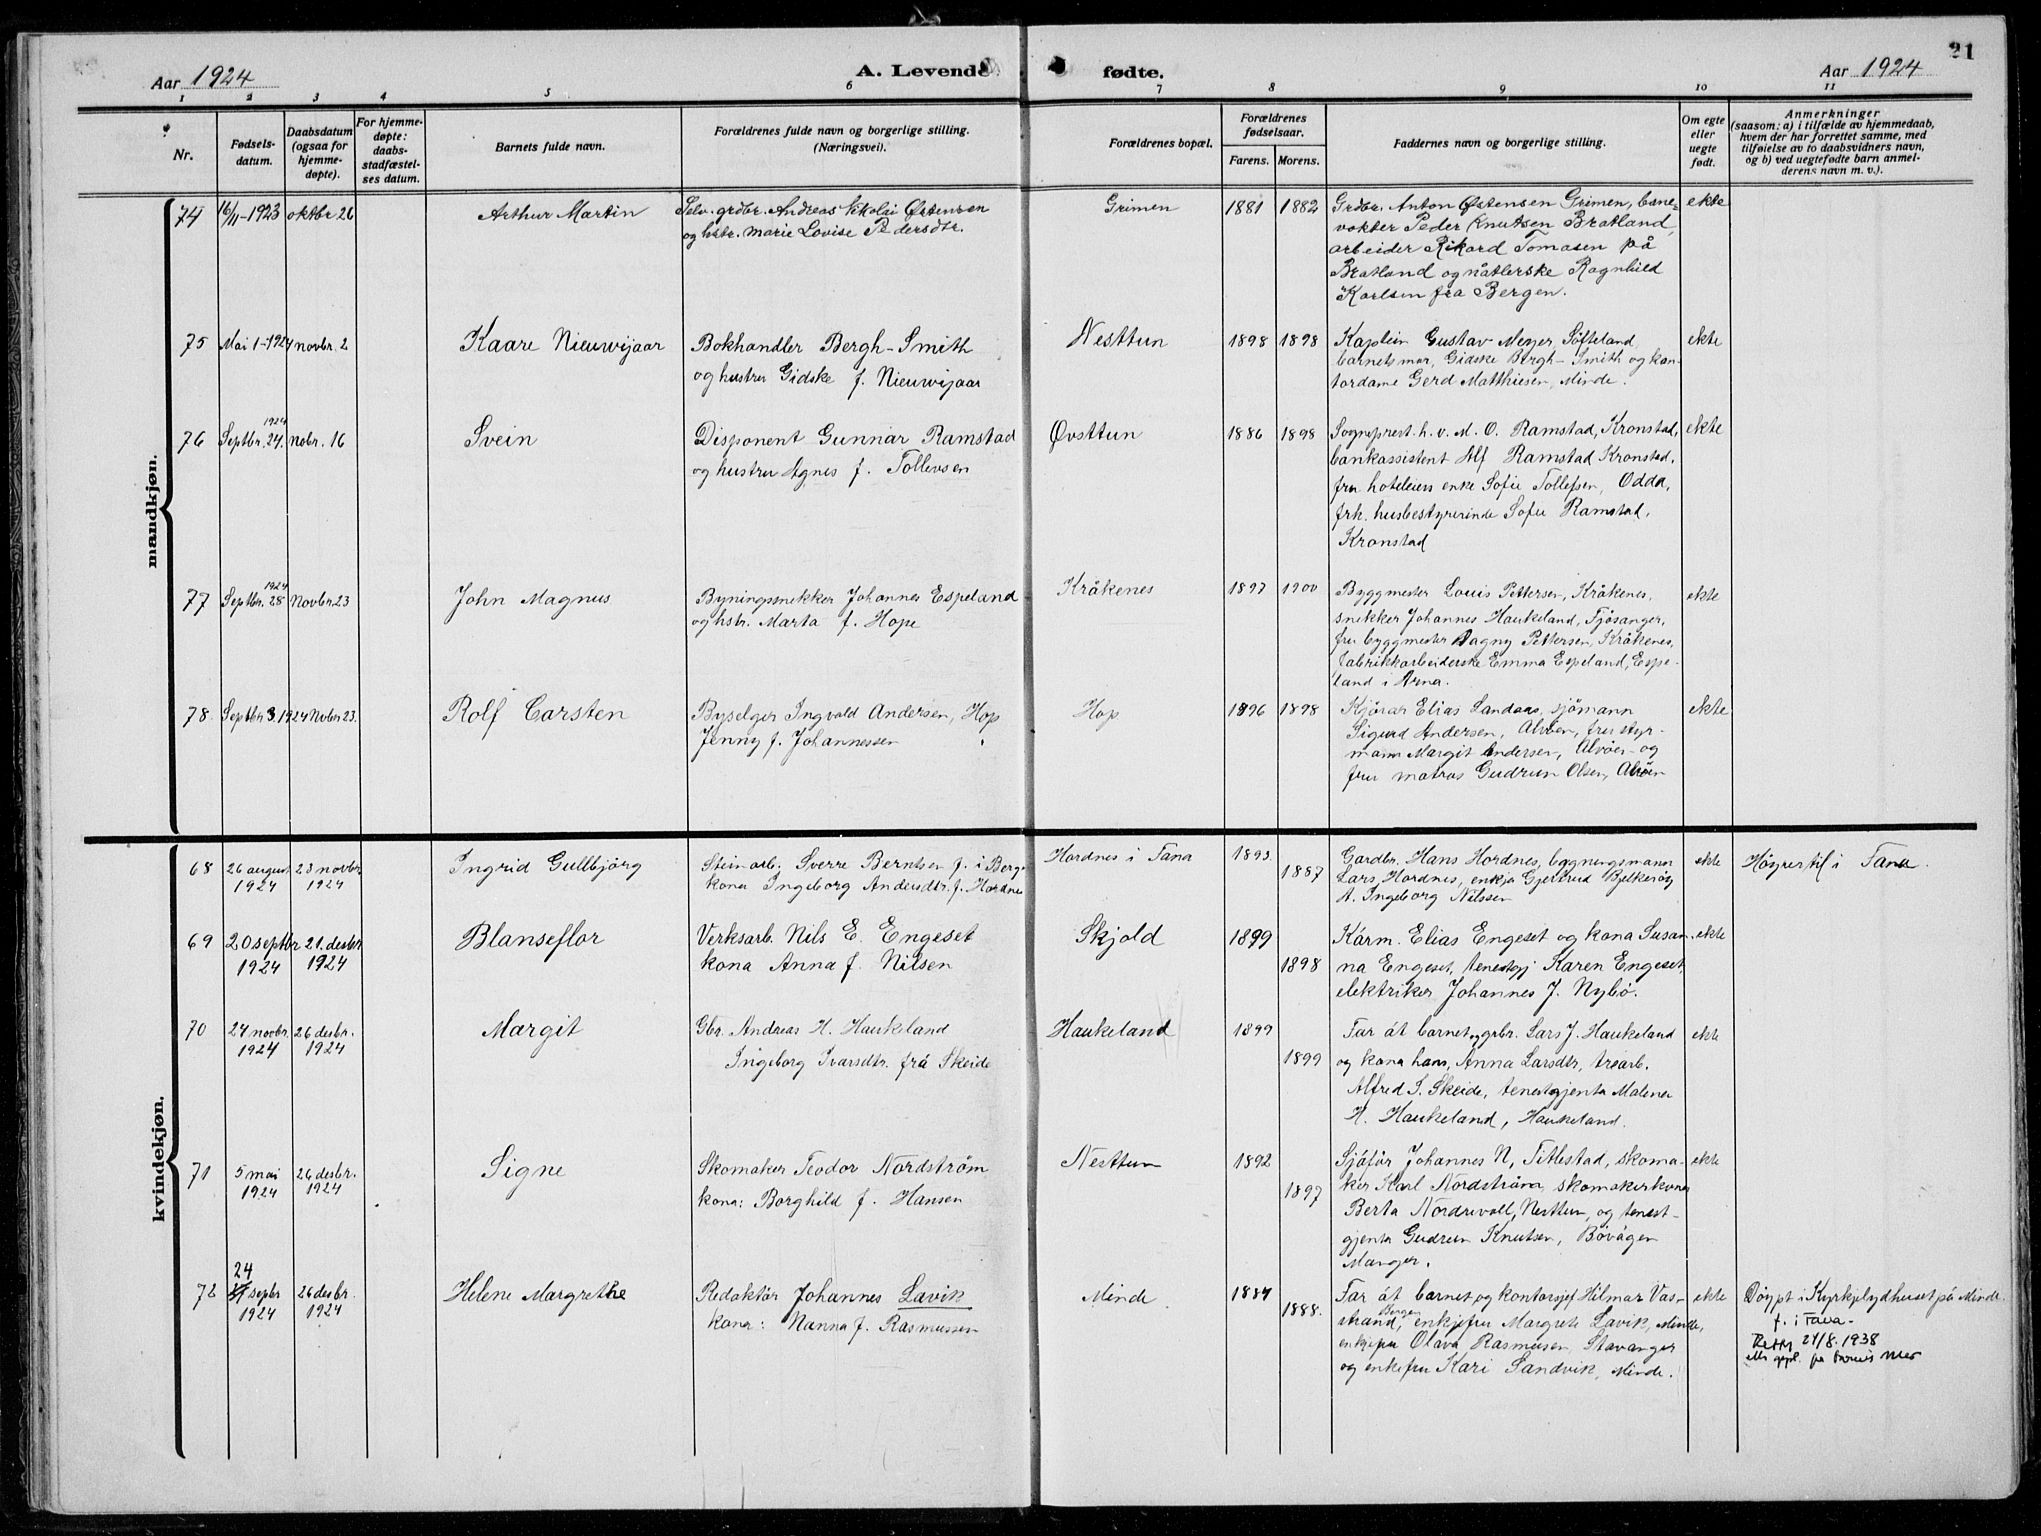 21
Aar 1924
A. Levende fødte.
Aar 1924
1 2 3 4 5 6 7 8 9 10 11
Nr.
Fødsels-
datum.
Daabsdatum
(ogsaa for
hjemme-
døpte).
For hjemme-
døpte:
daabs-
stadfæstel-
ses datum.
Barnets fulde navn.
Forældrenes fulde navn og borgerlige stilling.
(Næringsvei).
Forældrenes bopæl.
Forældrenes
fødselsaar.
Farens. Morens.
Faddernes navn og borgerlige stilling.
Om egte
eller
uegte
født.
Anmerkninger
(saasom: a) i tilfælde av hjemmedaab,
hvem der har forrettet samme, med
tilføielse av to daabsvidners navn,
og b) ved uegtefødte barn anmel-
derens navn m. v.).
mandkjøn.
74 16/11-1923 oktbr 26 Arthur Martin
Selv. grdbr. Andreas Nikolai Østensen
og hstr. Marie Lovise Pedersdtr.
Grimen 1881 1882
Grdbr. Anton Østensen Grimen, bane-
vokter Peder Knutsen Bratland,
arbeider Rikard Tomasen på
Bratland og nåtlerske Ragnhild
Karlsen fra Bergen.
ekte
75 Mai 1-1924 novbr. 2 Kaare Nieuwijaar
Bokhandler Bergh-Smith
og hustru Gidske f. Nieuwijaar
Nesttun 1898 1898
Kaptein Gustav Meyer, Søfteland,
barnets mor, Gidske Bergh-Smith og kon-
tordame Gerd Matthiesen, Minde.
ekte
76 Septbr. 24. 1924 nobr. 16 Svein
Disponent Gunnar Ramstad
og hustru Agnes f. Tollevsen
Øvsttun 1886 1898
Sogneprest. h. v. M. O. Ramstad, Kronstad,
bankassistent Alf Ramstad Kronstad,
fru hoteleiers enke Sofie Tollefsen, Odda,
frk. husbestyrerinde Sofie Ramstad,
Kronstad
ekte
77 Septbr. 28 1924 Novbr 23 John Magnus
Bygningsnekker Johannes Espeland
og hstr. Marta f. Hope
Kråkenes 1897 1900
Byggmester Louis Pettersen, Kråkenes,
snekker Johannes Haukeland, Fjøsanger,
fru byggmester Dagny Pettersen, Kråkenes,
fabrikkarbeiderske Emma Espeland, Espe-
land i Arna.
ekte
78. Septbr 3. 1924 Novbr 23. Rolf Carsten
Byselger Ingvald Andersen, Hop
Jenny f. Johannessen
Hop 1896 1898
Kjørar Elias Landaas, sjømann
Sigurd Andersen, Alvøen, fru styr-
mann Margit Andersen, Alvøen og
fru matros Gudrun Olsen, Alvøen
ekte
kvindekjøn.
68 26 august 1924 23 novbr 1924 Ingrid Gullbjørg
Steinarb. Sverre Berntsen f. i Berg.
kona Ingeborg Andersdtr. f. Hordnes
Hordnes i Fana 1893. 1887
Gardbr. Hans Hordnes, bygningsmann
Lars Hordnes, enkja Gjertrud Bjelkerøy
A. Ingeborg Nilssen
ekte
Høyrer til i Fana.
69 20 septbr 1924 21. desbr 1924 Blanseflor
Verksarb. Nils E. Engeset
kona Anna f. Nilsen
Skjold 1899 1898
Kårm. Elias Engeset og kona Susan-
na Engeset, tenestgj Karen Engeset,
elektriker Johannes J. Nybø.
ekte
70 24 novbr. 1924 26 desbr. 1924 Margit
Gbr. Andreas H. Haukeland
Ingeborg Ivarsdtr. frå Skeide
Haukeland 1899 1899
Far åt barnet og grbr. Lars J. Haukeland
og kona hans, Anna Larsdtr, trearb.
Alfred I. Skeide, tenestgjenta Malena
H. Haukeland, Haukeland.
ekte
71 5 mai 1924 26 desbr. 1924 Signe
Skomaker Teodor Nordstrøm
kona: Borghild f. Hansen
Nesttun 1892 1897
Sjåfør Johannes N. Titlestad, skoma-
ker Karl Nordstrøm, skomakerkona
Berta Nordrevoll, Nesttun, og tenest-
gjenta Gudrun Knutsen, Bøvågen
Manger.
ekte
72 24 septbr 1924 26 desbr. 1924 Helene Margrethe
Redaktør Johannes Lavik
kona: Nanna f. Rasmussen
Minde 1884 1888.
Far åt barnet, og kontorsjef Hilmar Vas-
strand, Bergen enkjefru Margrete Lavik, Minde,
enkjefru Olava Rasmussen Stavanger
og enkefru Kari Sandvik, Minde.
ekte
Døypt i Kyrkjelydhuset på Minde.
f. i Fana-
24/8. 1938